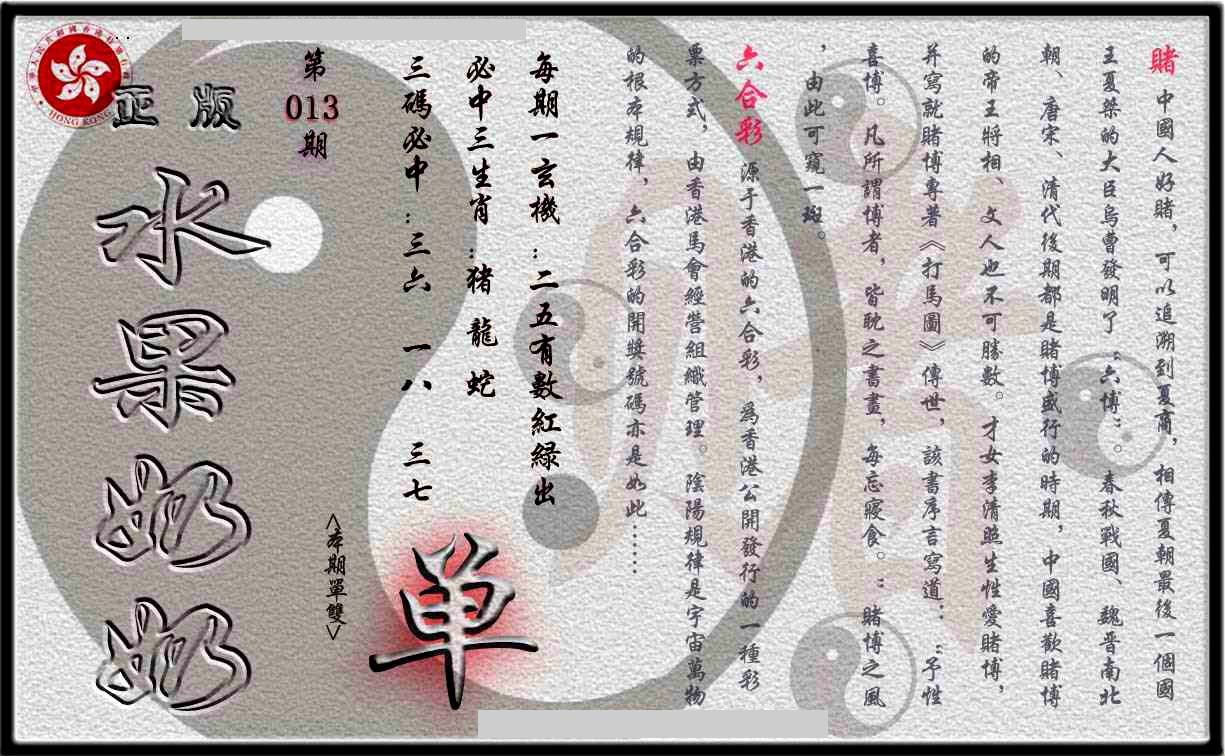 賭 中國人好賭，可以追溯到夏商，相傳夏朝最後一個國
王夏桀的大臣烏曹發明了“六博”。春秋戰國、魏晉南北
朝、唐宋、清代後期都是賭博盛行的時期，中國喜歡賭博
的帝王將相、文人也不可勝數。才女李清照生性愛賭博，
并寫就賭博專著《打馬圖》傳世，該書序言寫道：“予性
喜博。凡所謂博者，皆耽之書畫，每忘寢食。”賭博之風
，由此可窺一斑。
六合彩 源于香港的六合彩，爲香港公開發行的一種彩
票方式，由香港馬會經營組織管理。陰陽規律是宇宙萬物
的根本規律，六合彩的開獎號碼亦是如此……
每期一玄機：二五有數紅綠出
必中三生肖：猪 龍 蛇
三碼必中：三六 一八 三七
单
<本期單雙>
第013期
正版
水果奶奶
HONG KONG